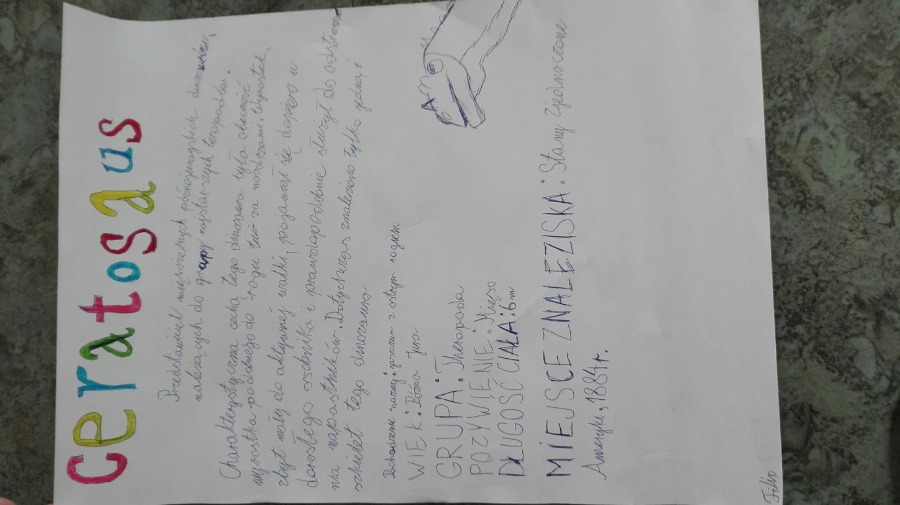 Ceratosaus
Przedstawiciel mięsożernych późnojurajskich dinozaurów,
należących do grupy największych
Charakterystyczną cechą tego dinozaura była obecność
wyrostka podobnego do rogu tuż za nozdrzami. Wyrostek
zbyt mały do aktywnej walki, pojawiał się dopiero u
dorosłego osobnika i prawdopodobnie służył do
na napastników. Dotychczas znaleziono tylko jeden
szkielet tego dinozaura
Pochodzenie nazwy: z ostrym rogiem
WIEK: Późna Jura
GRUPA: Theropoda
POŻYWIENIE: Mięso
DŁUGOŚĆ CIAŁA: 6m
MIEJSCE ZNALEZISKA: Stany Zjednoczone
Ameryki, 1884r.
Filip